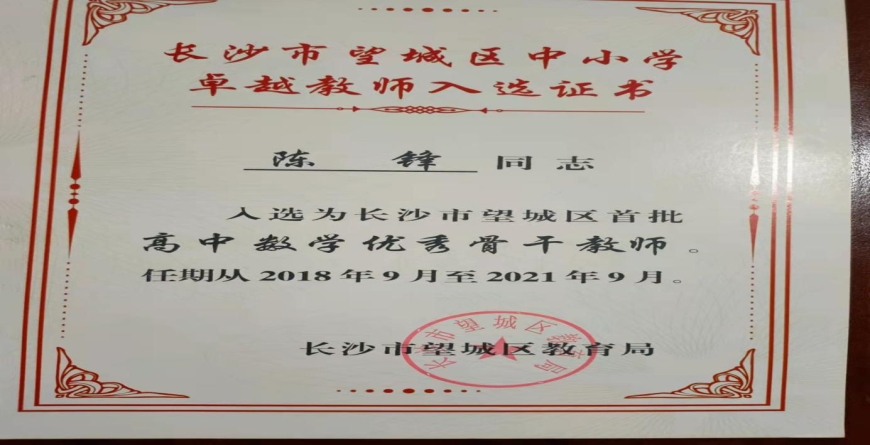 长沙市望城区中小学
卓越教师入选证书
陈 锋 同志
入选为长沙市望城区首批
高中数学优秀骨干教师。
任期从2018年9月至2021年9月。
长沙市望城区教育局
长沙市望城区教育局